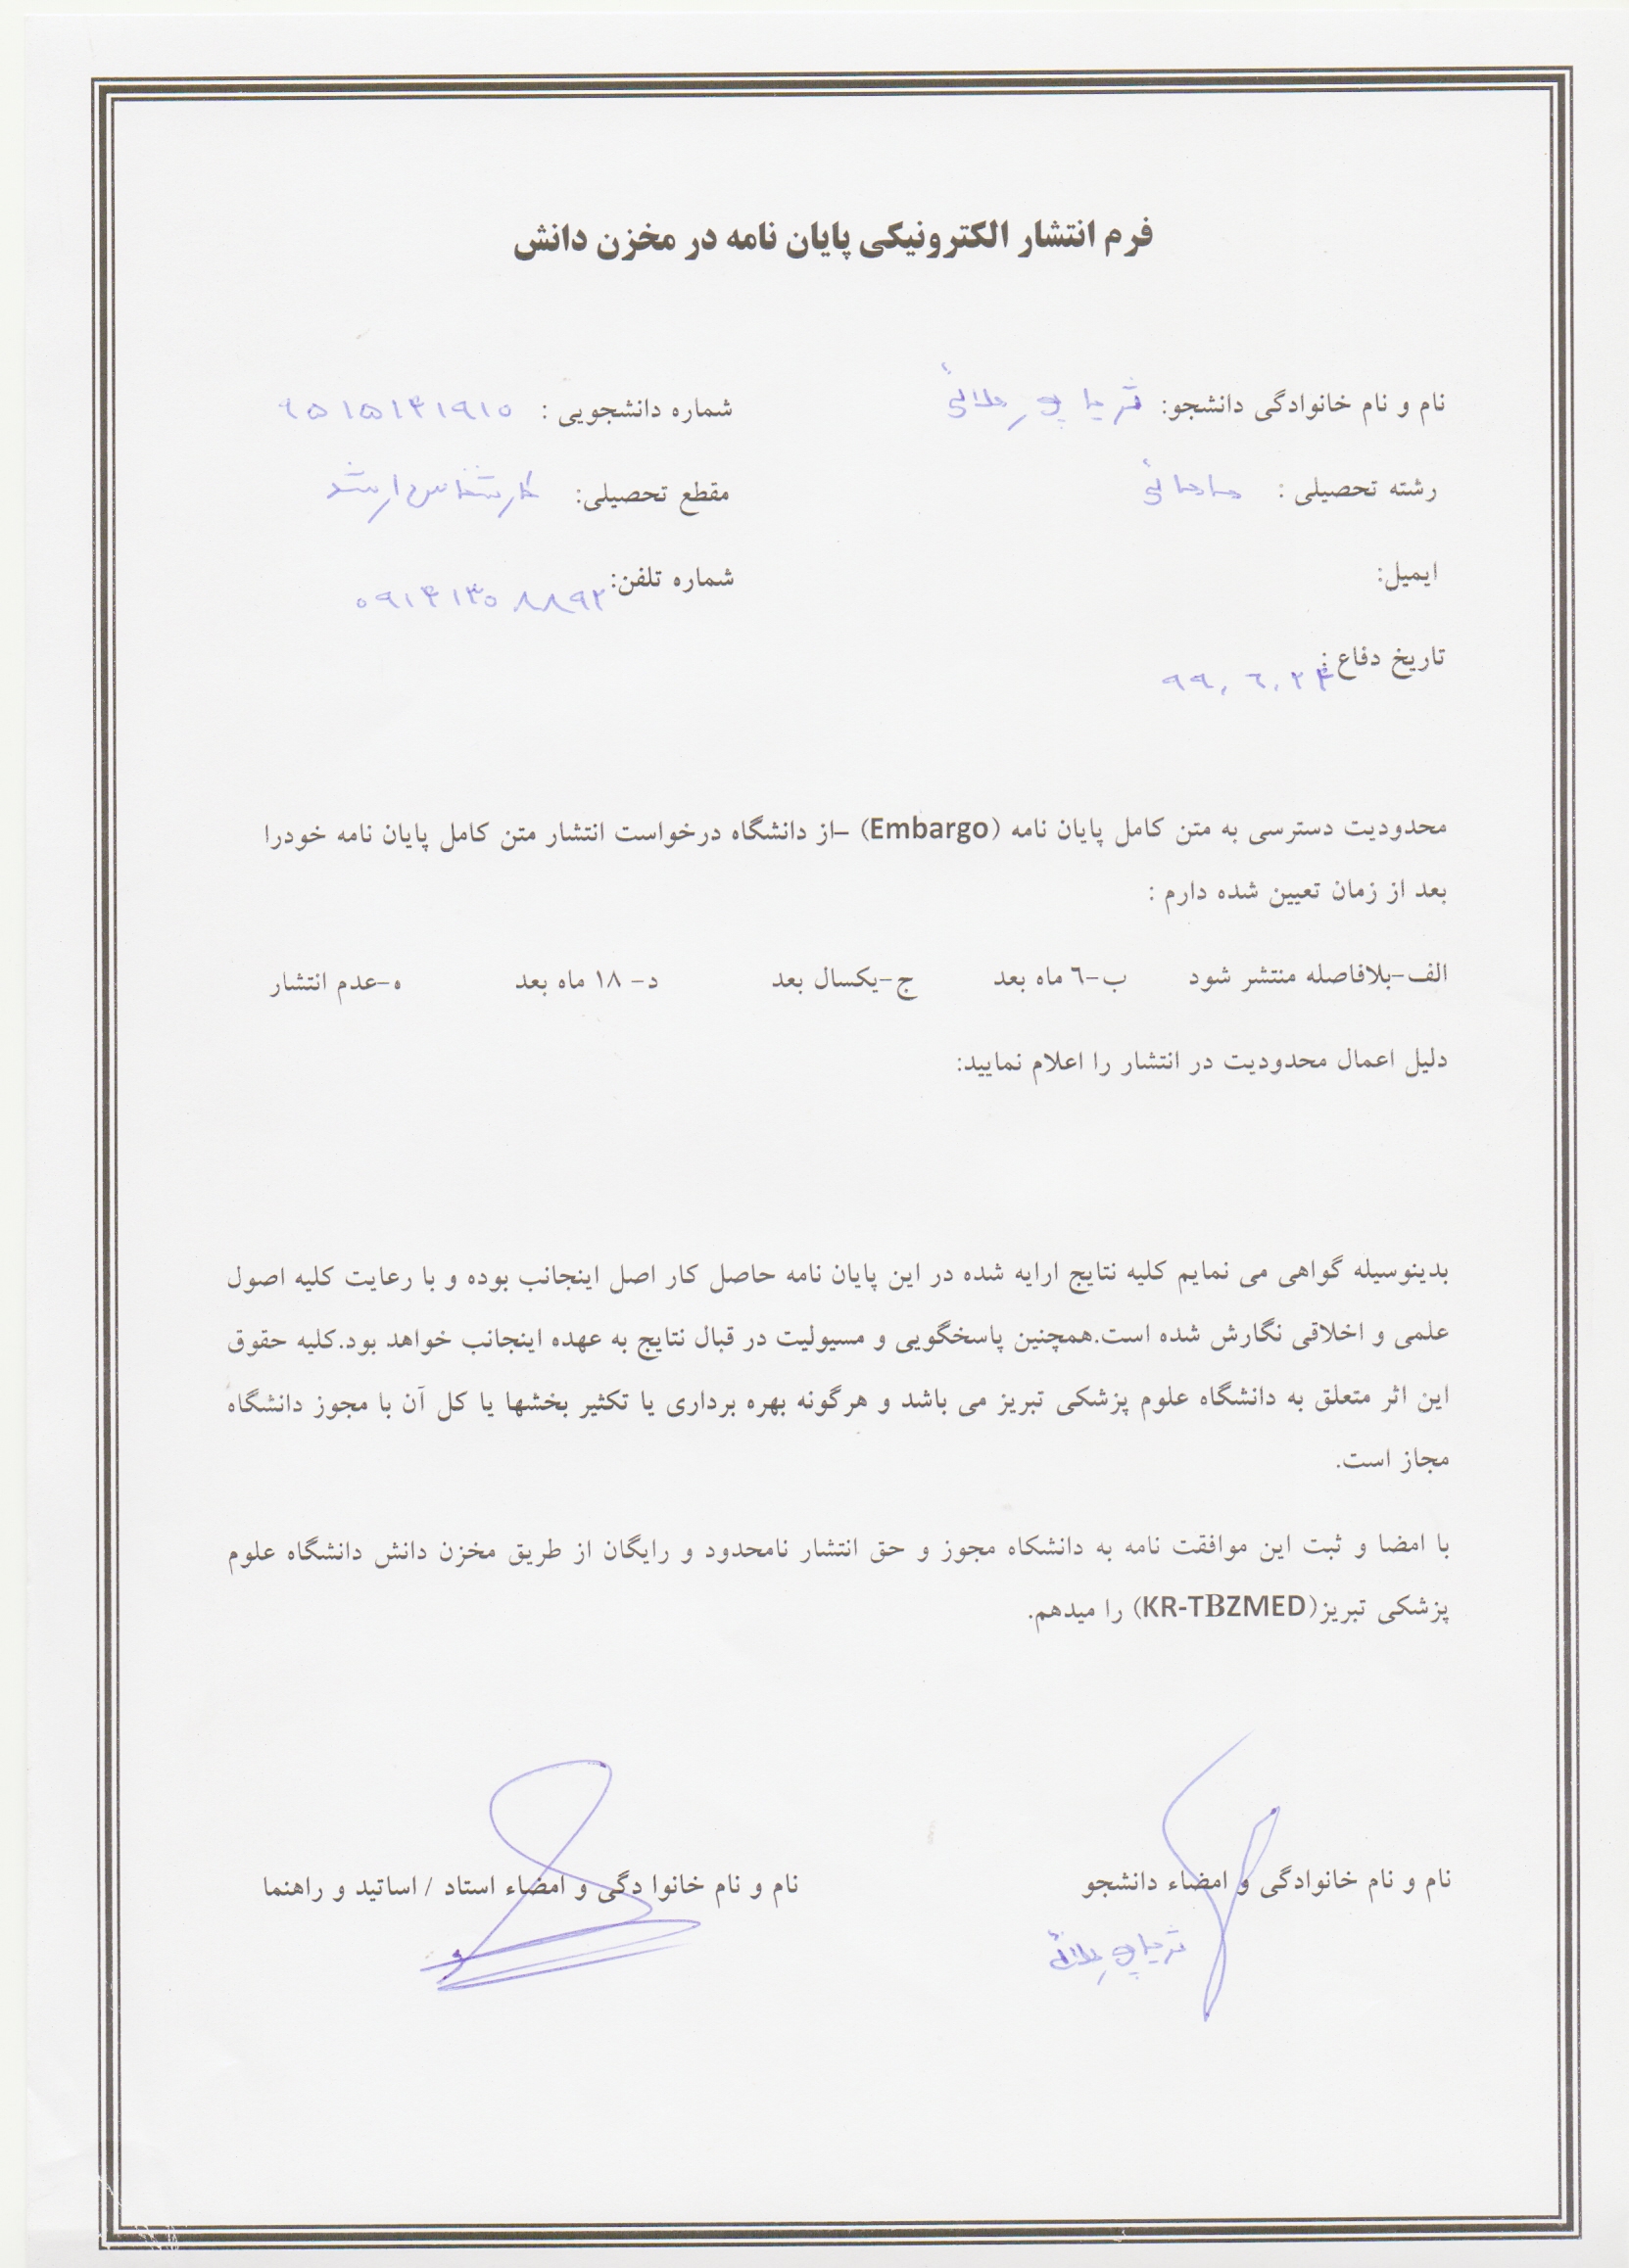 فرم انتشار الکترونیکی پایان نامه در مخزن دانش
نام و نام خانوادگی دانشجو: ثریا پور ملائی شماره دانشجویی : ۹۵۱۵۱۴۱۹۱۵
رشته تحصیلی : مامائی مقطع تحصیلی: کارشناسی ارشد
ایمیل: شماره تلفن:
تاریخ دفاع : ۹۹٫۶٫۲۴
محدودیت دسترسی به متن کامل پایان نامه (Embargo) –از دانشگاه درخواست انتشار متن کامل پایان نامه خودرا
بعد از زمان تعیین شده دارم :
الف-بلافاصله منتشر شود ب-٦ ماه بعد ج-یکسال بعد د- ۱۸ ماه بعد ه-عدم انتشار
دلیل اعمال محدودیت در انتشار را اعلام نمایید:
بدینوسیله گواهی می نمایم کلیه نتایج ارایه شده در این پایان نامه حاصل کار اصل اینجانب بوده و با رعایت کلیه اصول
علمی و اخلاقی نگارش شده است.همچنین پاسخگویی و مسیولیت در قبال نتایج به عهده اینجانب خواهد بود.کلیه حقوق
این اثر متعلق به دانشگاه علوم پزشکی تبریز می باشد و هرگونه بهره برداری یا تکثیر بخشها یا کل آن با مجوز دانشگاه
مجاز است.
با امضا و ثبت این موافقت نامه به دانشکاه مجوز و حق انتشار نامحدود و رایگان از طریق مخزن دانش دانشگاه علوم
پزشکی تبریز(KR-TBZMED) را میدهم.
نام و نام خانوادگی و امضاء دانشجو نام و نام خانوا دگی و امضاء استاد / اساتید و راهنما
ثریا پور ملائی